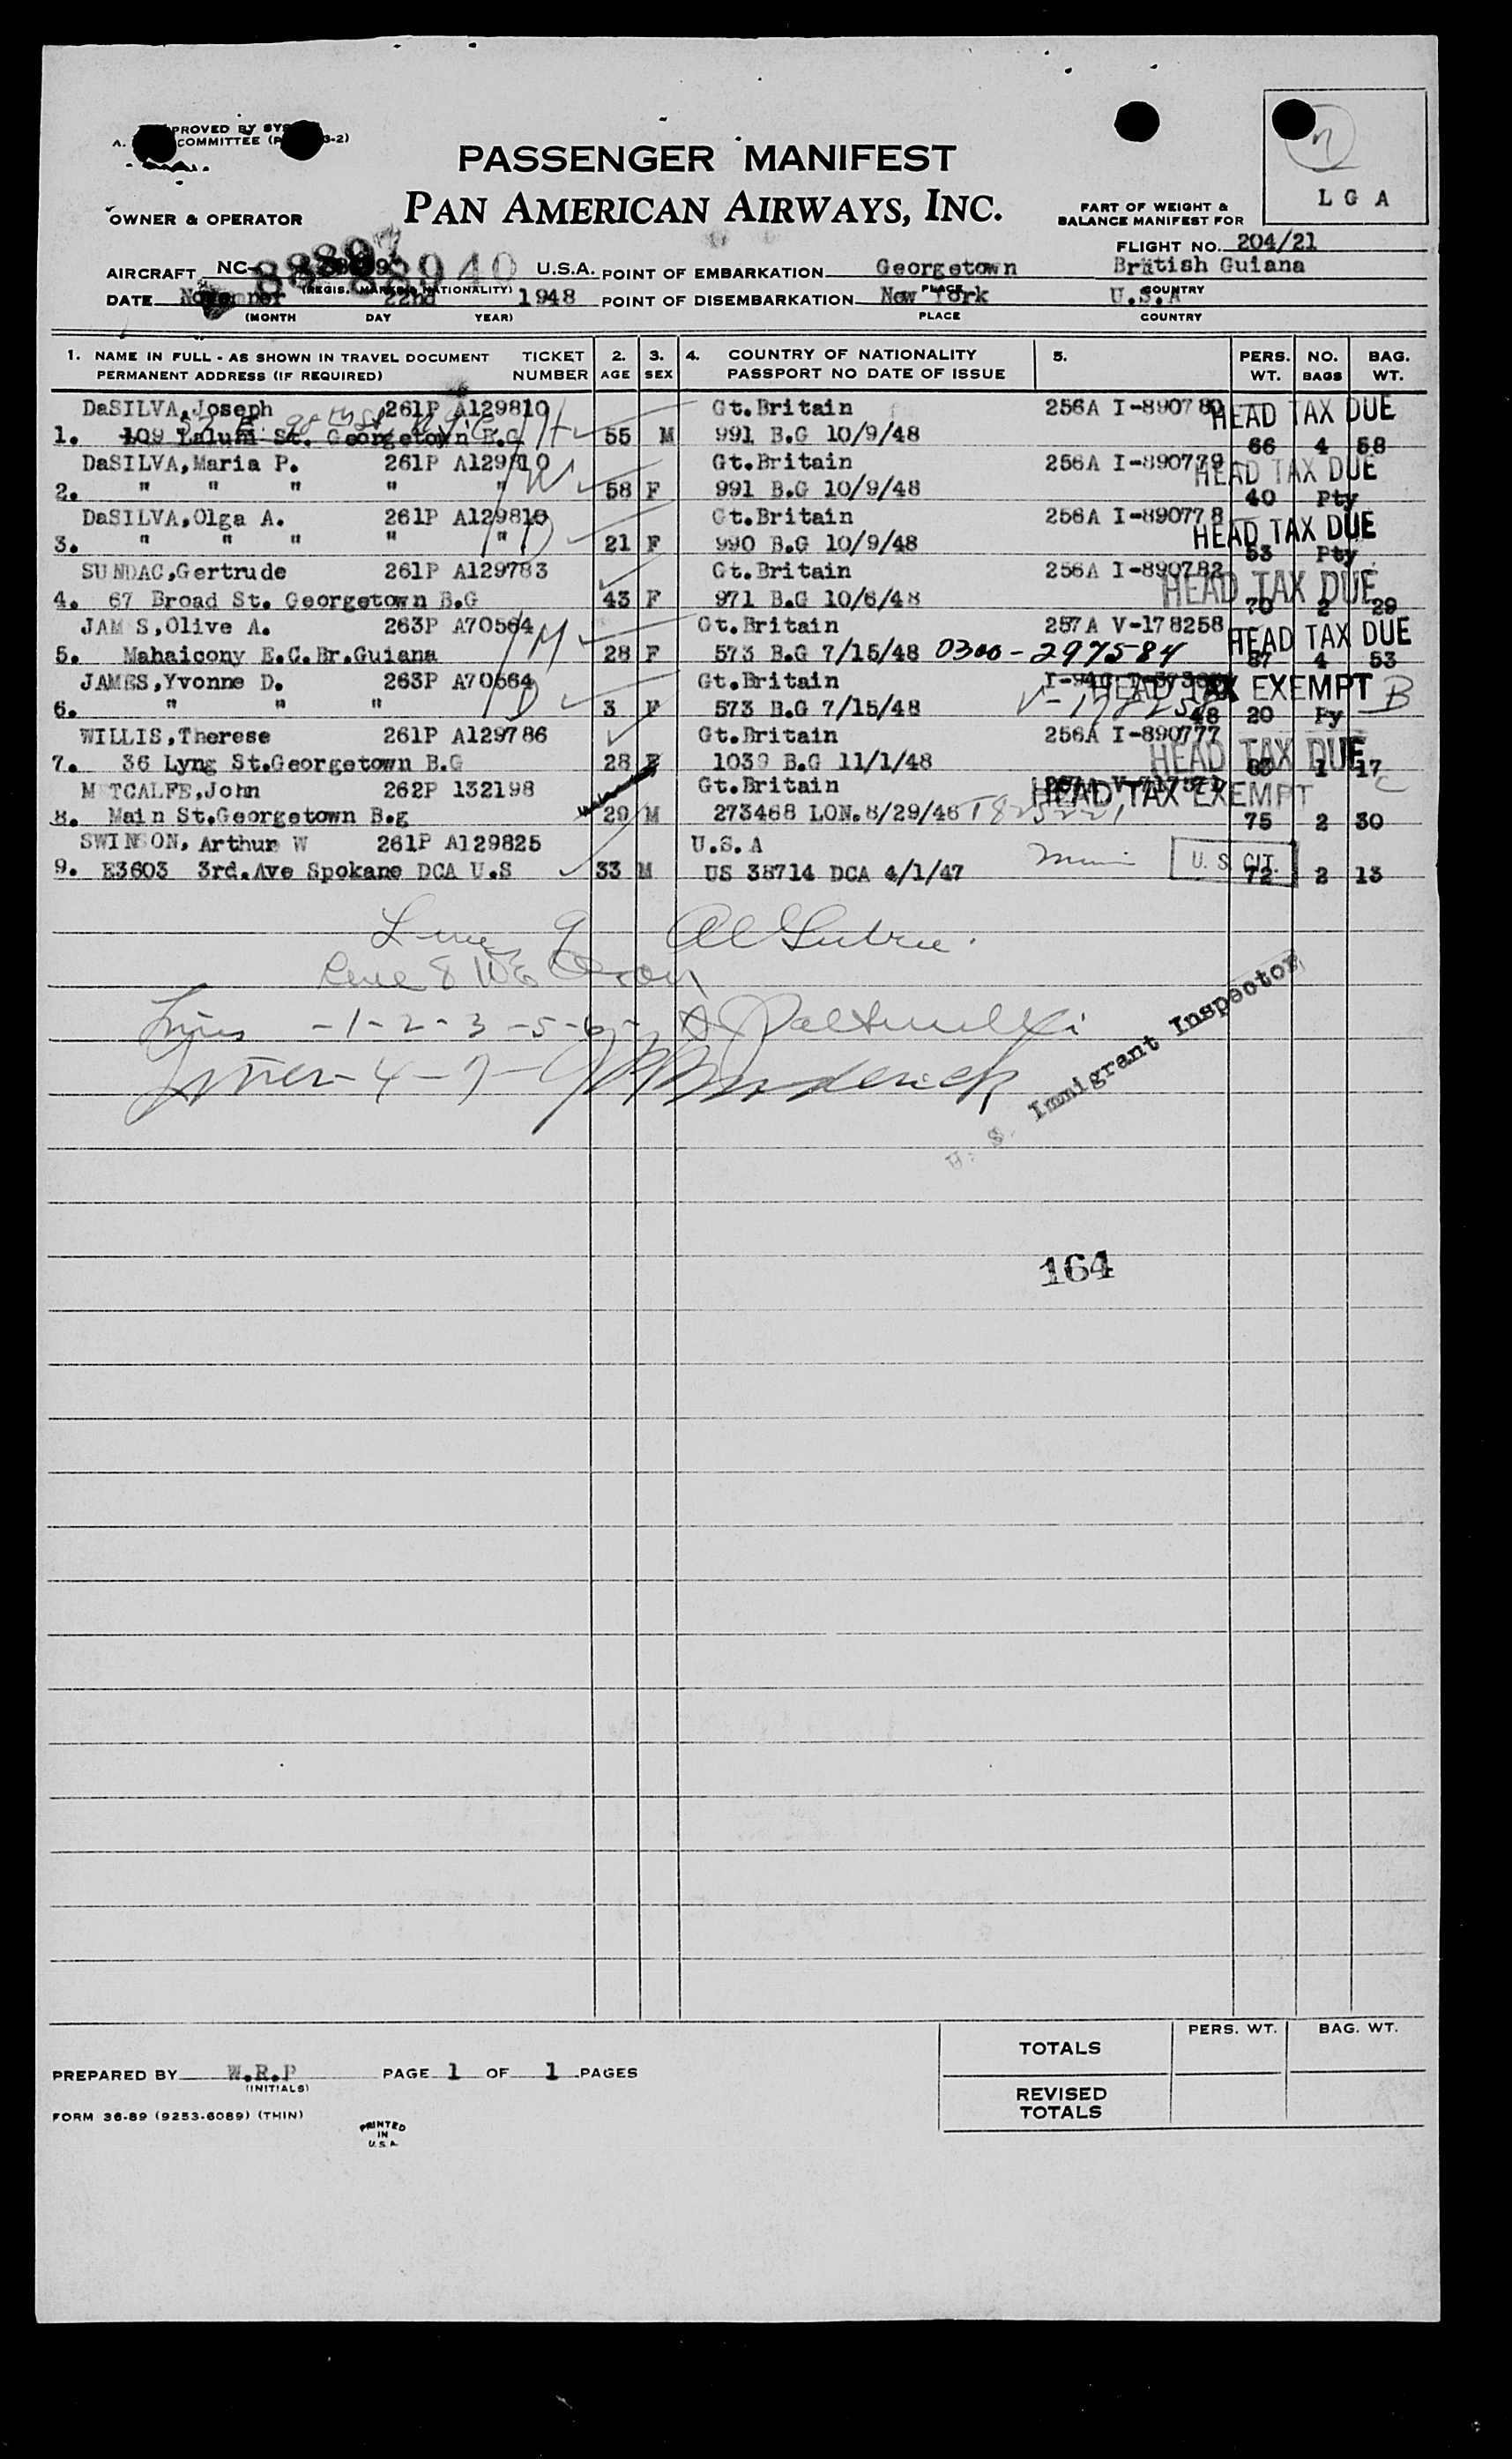 PASSENGER MANIFEST
PAN AMERICAN AIRWAYS, INC.
OWNER & OPERATOR
PART OF WEIGHT &
BALANCE MANIFEST FOR
L G A
FLIGHT NO. 204/21
AIRCRAFT NC- U.S.A. POINT OF EMBARKATION Georgetown British Guiana
PLACE COUNTRY
DATE 22nd 1948 POINT OF DISEMBARKATION New York U.S.A
(MONTH DAY YEAR) PLACE COUNTRY
1. NAME IN FULL - AS SHOWN IN TRAVEL DOCUMENT TICKET 2. 3. 4. COUNTRY OF NATIONALITY 5. PERS. NO. BAG.
PERMANENT ADDRESS (IF REQUIRED) NUMBER AGE SEX PASSPORT NO DATE OF ISSUE WT. BAGS WT.
DaSILVA,Joseph 261P A129810 Gt.Britain 256A HEAD TAX DUE
1. St. Georgetown B.G 55 M 991 B.G 10/9/48 66 4 58
DaSILVA,Maria P. 261P A129810 Gt.Britain 256A I-890779 HEAD TAX DUE
2. " " " " " 58 F 991 B.G 10/9/48 40 Pty
DaSILVA,Olga A. 261P A129810 Gt.Britain 256A I-890778 HEAD TAX DUE
3. " " " " " 21 F 990 B.G 10/9/48 53 Pty
SUNDAC,Gertrude 261P A129783 Gt.Britain 256A I-890782 HEAD TAX DUE
4. 67 Broad St. Georgetown B.G 43 F 971 B.G 10/6/48 70 2 29
JAM S,Olive A. 263P A70564 Gt.Britain 257A V-178258 HEAD TAX DUE
5. Mahaicony E.C.Br.Guiana 28 F 573 B.G 7/15/48 0300-297584 4 53
JAMES,Yvonne D. 263P A70564 Gt.Britain HEAD TAX EXEMPT B
6. " " " 3 F 573 B.G 7/15/48 20 Py
WILLIS,Therese 261P A129786 Gt.Britain 256A I-890777 HEAD TAX DUE
7. 36 Lyng St.Georgetown B.G 28 F 1039 B.G 11/1/48 1 17
M TCALFE,John 262P 132198 Gt.Britain HEAD TAX EXEMPT
8. Main St.Georgetown B.g 29 M 273468 LON.8/29/46 75 2 30
SWINSON, Arthur W 261P A129825 U.S.A U. S. CIT.
9. E3603 3rd.Ave Spokane DCA U.S 33 M US 38714 DCA 4/1/47 72 2 13
Line 9
Line 8
Lines -1-2-3-5-6-
Lines-4-7-
U. S. Immigrant Inspector
164
PERS. WT. BAG. WT.
TOTALS
REVISED
TOTALS
PREPARED BY W.R.P PAGE 1 OF 1 PAGES
(INITIALS)
FORM 36-89 (9253-6089) (THIN)
PRINTED
IN
U.S.A.